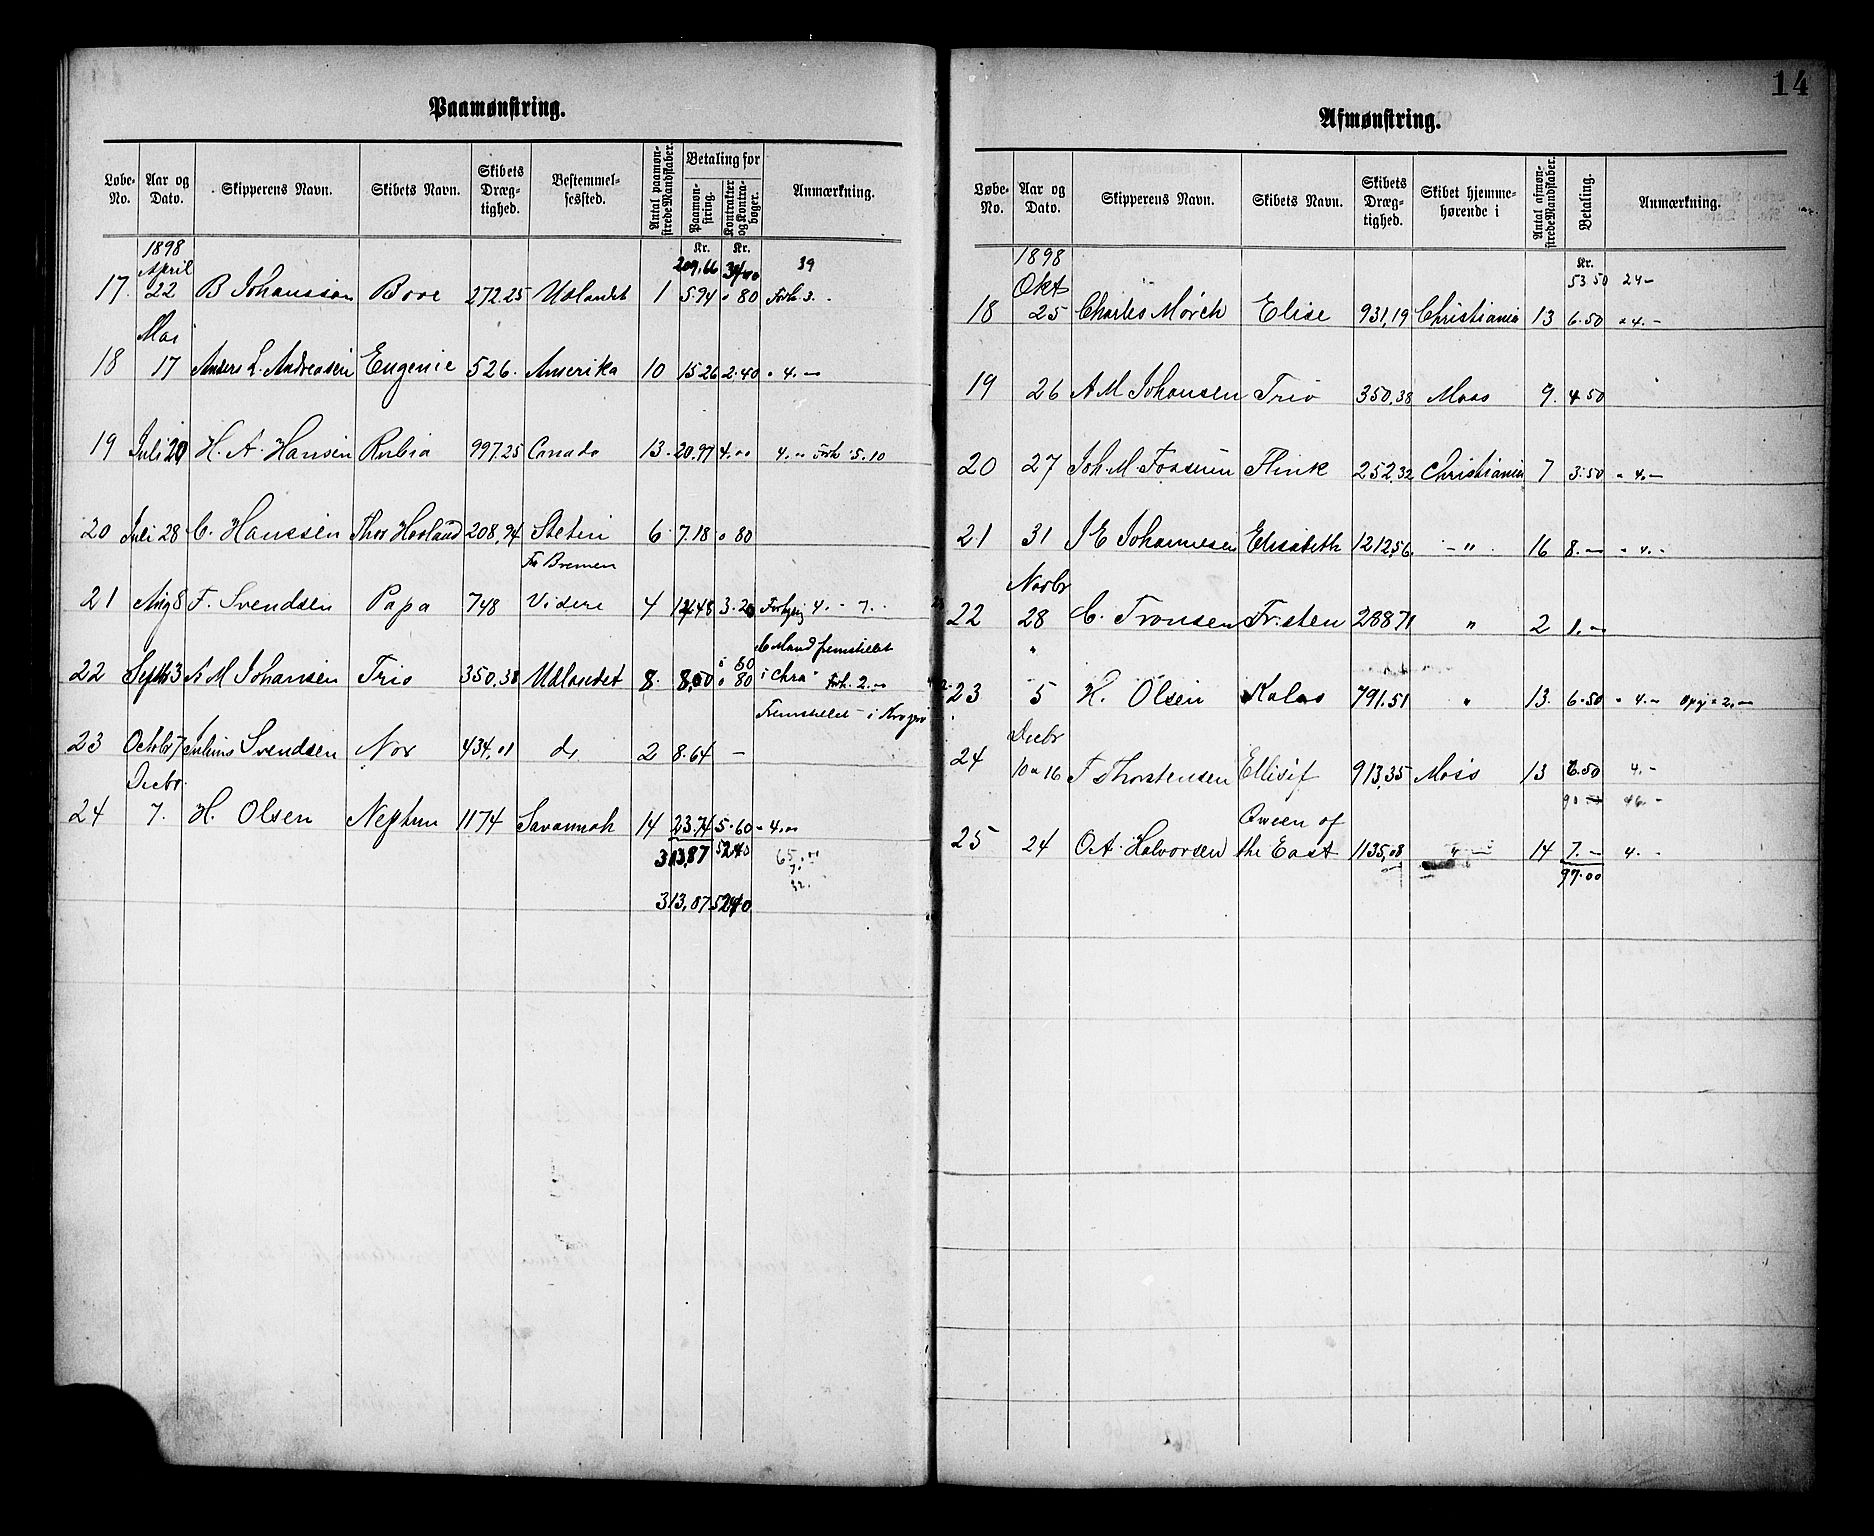 14
Paamønstring.
Løbe-No. Aar og Dato. Skipperens Navn. Skibets Navn. Skibets Dræg-tighed. Bestemmel-sessted. Antal paamøn-strede Mandskaber. Betaling for Paamøn-string. Kontrakter og Kontra-bøger. Anmærkning.
1898 Kr. Kr.
April 209,66 39
17. 22 B Johansson Bore 272.25 Udlandet 1 5.94 " 80 Forh. 3. -
Mai
18 17 Anders L. Andreasen Eugenie 526. Amerika 10 15.26 2.40 " 4. —
19 Juli 20 H. A. Hansen Rubia 997.25 Canada 13. 20.97 4.00 4. " Forh. 5.10
20 Juli 28 C. Hanssen Thor Havland 208,94 Stetin 6 7.18 " 80
Fra Bremen
21 Aug 8 F. Svendsen Papa 748 Videre 4 3.20 4. - 7. -
6 Mand fremstillet
22 Septb 3 A M Johansen Trio 350.38 Udlandet 8. 8,00 " 80 i Chra Forh. 2. —
Fremstillet i
23 Octobr 7 Julius Svendsen Nor 434,01 do 2 8.64 —
Decbr.
24 7. H. Olsen Neptun 1174 Savannah 14 23.74 5.60 " 4.00
313,87 52.40 65.
313,87 52.40
Afmønstring.
Løbe-No. Aar og Dato. Skipperens Navn. Skibets Navn. Skibets Dræg-tighed. Skibet hjemme-hørende i Antal afmøn-strede Mandskaber. Betaling. Anmærkning.
1898 Kr.
Okt 53.50 24 —
18 25 Charles Mørch Elise 931,19 Christiania 13 6.50 " 4. —
19 26 A M Johansen Trio 350,38 Moss 9. 4.50
20 27 Joh. M. Fosserun Flink 252,32 Christiania 7 3.50 " 4. —
21 31 J E Johannesen Elisabeth 1212,56 — " — 16 8. — " 4. —
Novbr
22 28 C. Tronsen Fristen 288.71 " 2 1. —
"
23 5 H. Olsen Kalas 791.51 " 13. 6.50 " 4. — 2. —
Decbr
24 10 a 16 T Thorstensen Ellisif 913,35 Moss 13 6.50 4. —
90 — 46. —
Queen of
25 24 O.A. Halvorsen the East 1135,08 " 14 7. — 4. —
97.00